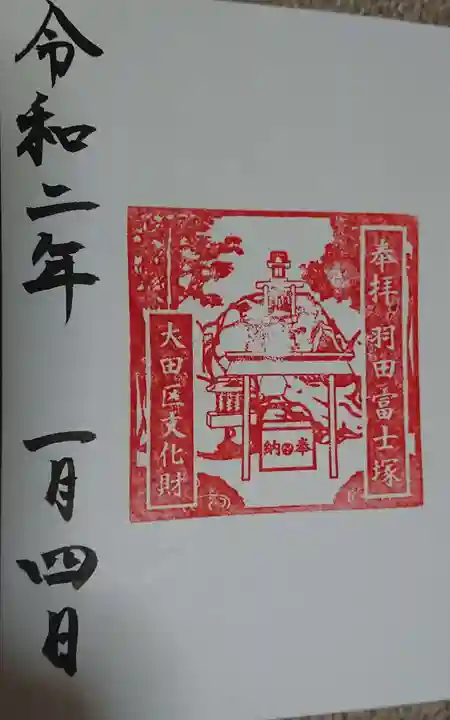 奉拝 羽田富士塚
奉納
大田区文化財
令和二年 一月四日